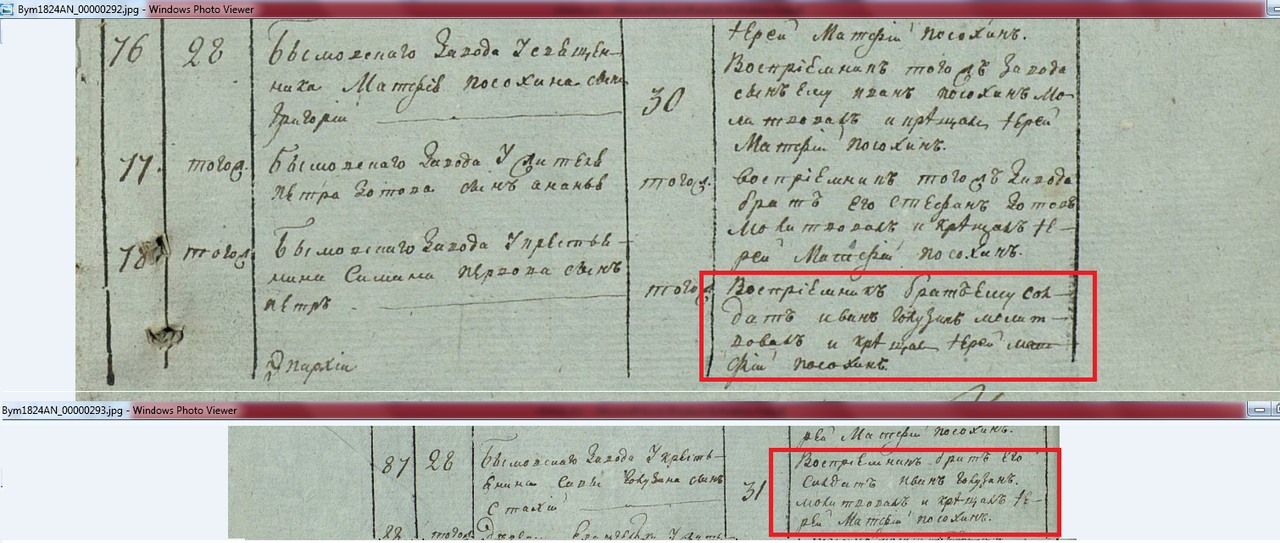 Bym1824AN_00000292.jpg - Windows Photo Viewer
76 28 Бымовскаго Завода У священ-
ника Матфiя Посохина сынъ
Григорiй
30
iерей Матфiй Посохинъ.
Восприемникъ тогожъ Завода
сынъ Ему иванъ посохинъ Мо-
литвовалъ и крѣщалъ iерей
Матфiй Посохинъ.
77. тогож. Бымовскаго Завода У
пѣтра Зотова сынъ ананья
тогож. Восприемникъ тогожъ Завода
братъ Его стефанъ Зотовъ
молитвовалъ и крѣщалъ iе-
рей Матфiй посохинъ.
78 тогож. Бымовскаго Завода Укрестья-
нина Силина сынъ
пѣтръ
тогож. Восприемникъ братъ Ему сол-
датъ иванъ молит-
вовалъ и крѣщалъ iерей мат-
фiй посохинъ.
Bym1824AN_00000293.jpg - Windows Photo Viewer
рей Матфiй посохинъ.
87 28 Бымовскаго Завода Укресть-
янина Савы сынъ
31
Восприемникъ братъ Его
солдатъ иванъ
молитвовалъ и крѣщалъ iе-
рей Матфiй посохинъ.
88 тогож.